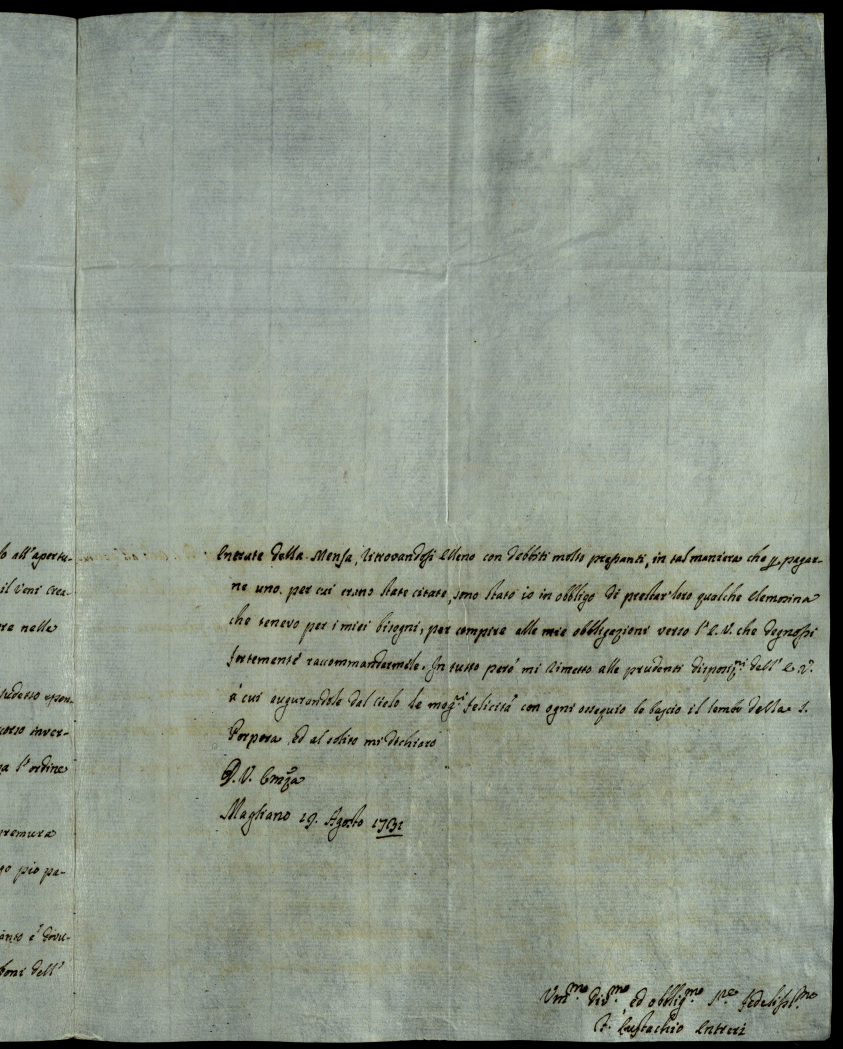 lo all'apertu-
il Veni Crea-
re nelle
sudetto espon-
corso inver-
l'ordine
premura
pio pa-
anto è dovu-
dell'
Entrate della Mensa, ritrovandosi Elleno con debbiti molto pressanti, in tal maniera che p pagar-
ne uno. per cui erano state citate, sono stato io in obbligo di prestar loro qualche elemosina
che tenevo per i miei bisogni, per compire alle mie obbligazioni verso l'E.V. che degnossi
fortemente raccommandarmele. In tutto però mi rimetto alle prudenti disposiz.ni dell'E.V.
à cui augurandole dal Cielo le mag.ri felicità con ogni ossequio le bascio il lembo della S.
Porpora, ed al solito mi dechiaro
D.V. Emza
Magliano 19. Agosto 1731
Um.mo div.mo ed obblig.mo S.re fedeliss.mo
F. Eustachio Entreri